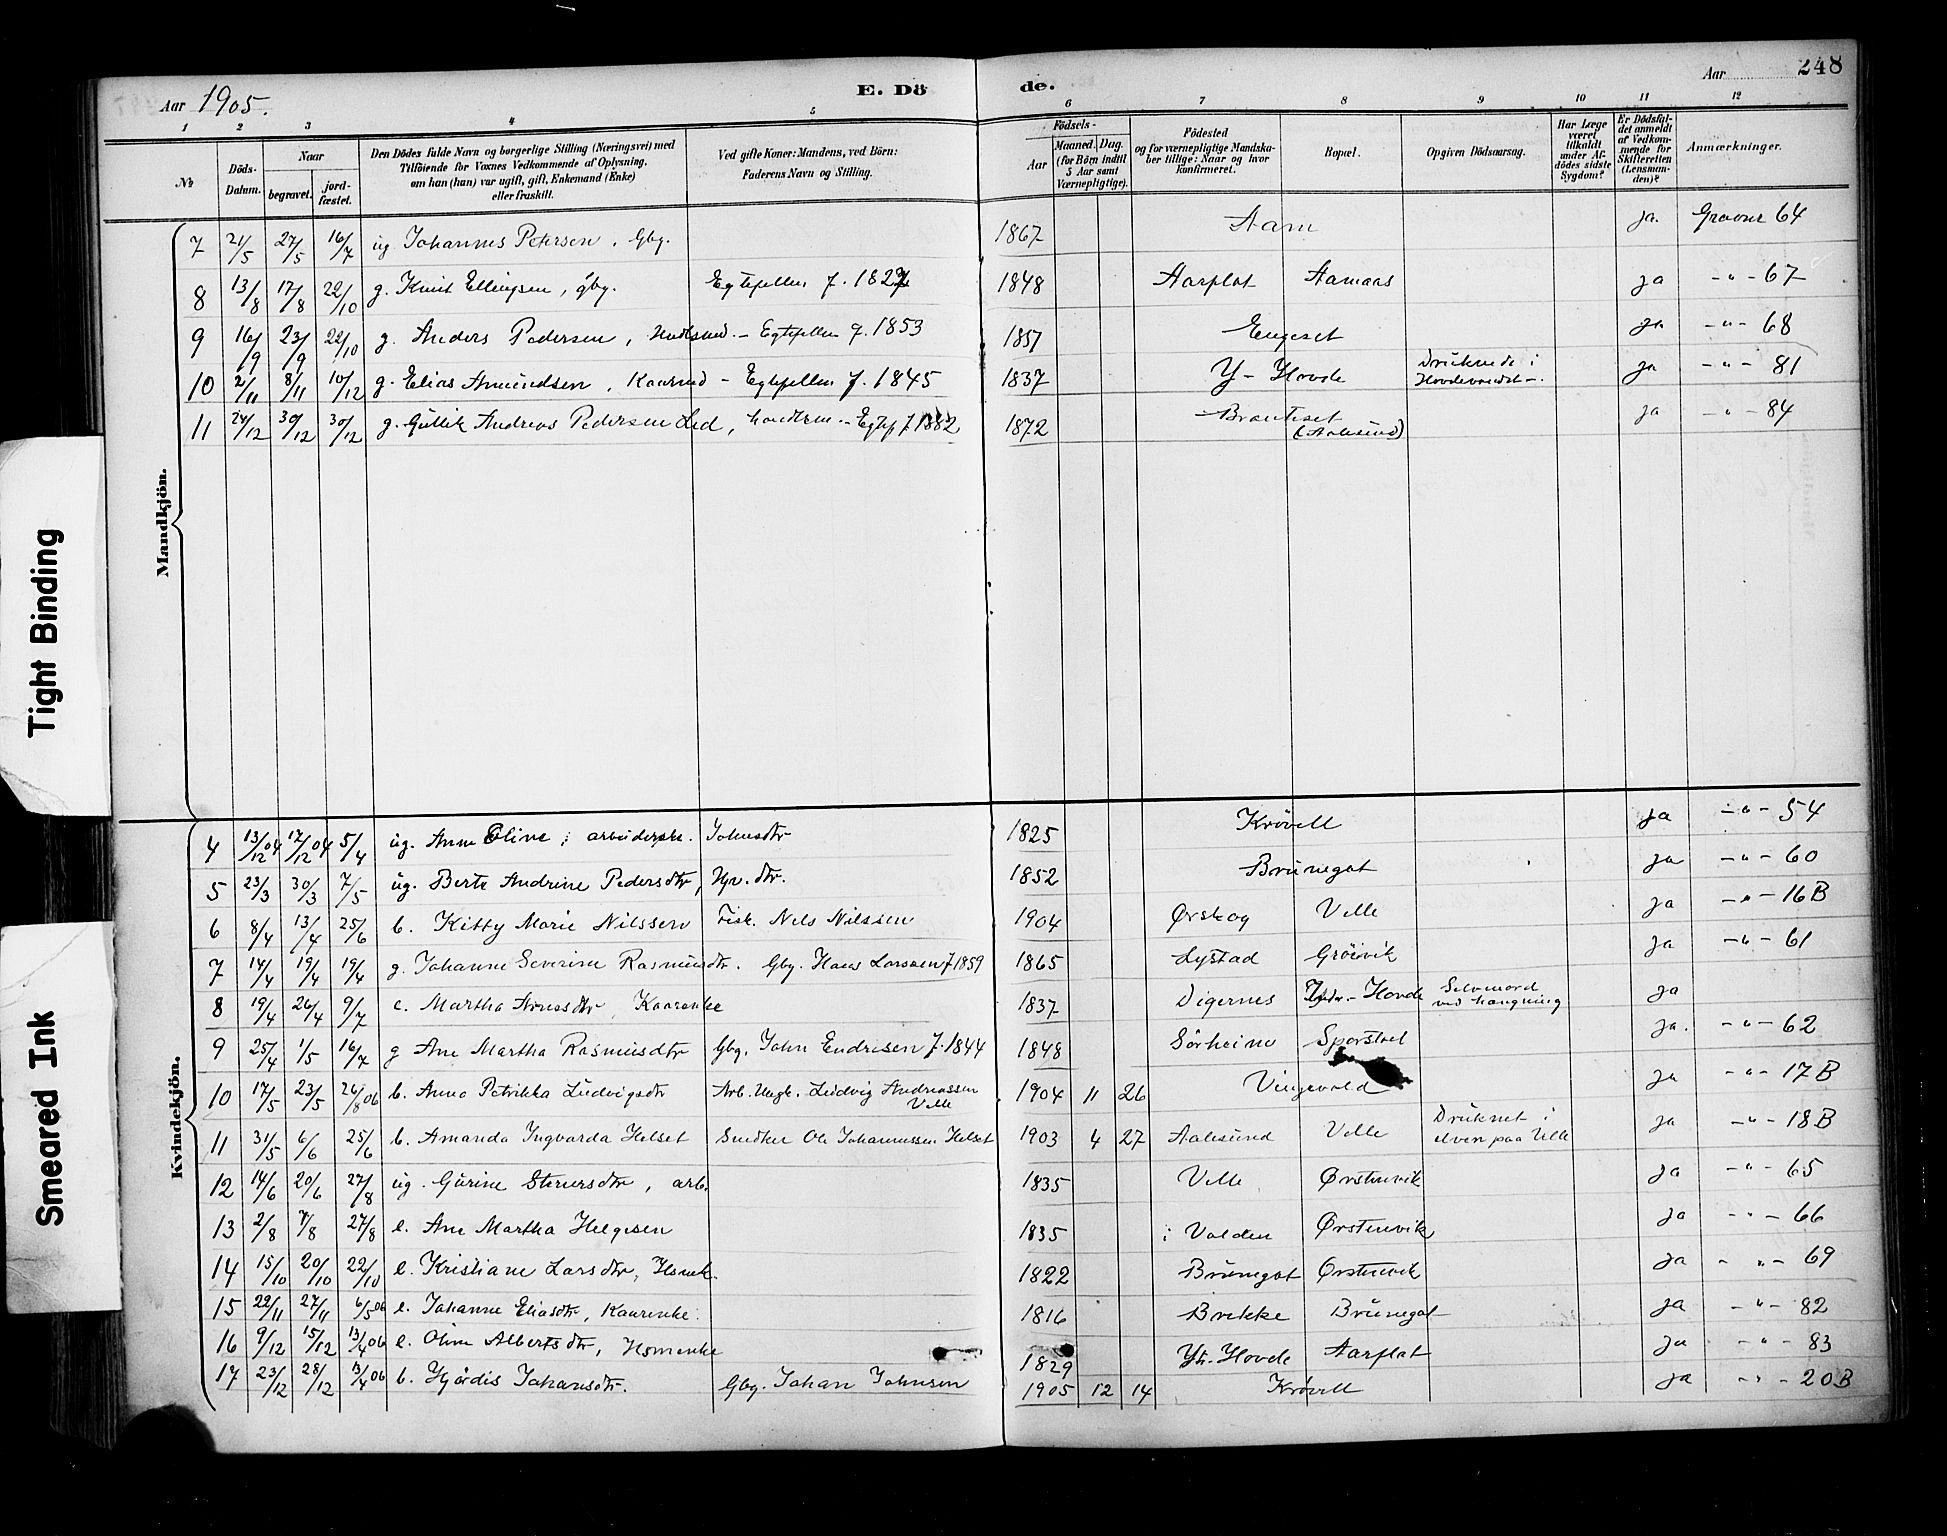 248
Aar 1905.
E. Dö de.
Aar
1 2 3 4 5 6 7 8 9 10 11 12
№
Döds-Datum.
Naar
begravet.
jord-fæstet.
Den Dödes fulde Navn og borgerlige Stilling (Næringsvei) med
Tilföiende for Voxnes Vedkommende af Oplysning,
om han (hun) var ugift, gift, Enkemand (Enke)
eller fraskilt.
Ved gifte Koner: Mandens, ved Börn:
Faderens Navn og Stilling.
Födsels-
Aar
Maaned. Dag.
(for Börn indtil
5 Aar samt
Værnepligtige).
Födested
og for værnepligtige Mandska-
ber tillige: Naar og hvor
konfirmeret.
Bopæl.
Opgiven Dödsaarsag.
Har Læge
været
tilkaldt
under Af-
dödes sidste
Sygdom?
Er Dödsfal-
det anmeldt
af Vedkom-
mende for
Skifteretten
(Lensman-
den)?
Anmærkninger.
Mandkjön.
7 21/5 27/5 16/7 ug. Johannes Petersen, Gbg. 1867 Aam ja. Gravnr 64
8 13/8 17/8 22/10 g. Knut Ellingsen, gbg. Egtefellen f. 1827 1848 Aarflot Aamaas ja -"- 67
9 16/9 23/9 22/10 g. Anders Pedersen, - Egtefellen f. 1853 1857 Engeset ja -"- 68
10 2/11 8/11 10/12 g. Elias Amundsen, Kaarmd - Egtefellen f. 1845 1837 Y-Hovde Druknede i Hovdevandet ja -"- 81
11 24/12 30/12 30/12 g. Gullik Andreas Pedersen Lid, - Egtef f 1882 1872 Brauteset (Aalesund) ja -"- 84
Kvindekjön.
4 13/12 04 17/12 04 5/4 ug. Anne Oline, Johnsdtr 1825 Krøvell ja -"- 54
5 23/3 30/3 7/5 ug. Berte Andrine Pedersdtr, dtr. 1852 Brunegot ja -"- 60
6 8/4 13/4 25/6 b. Kitty Marie Nilssen Fisk. Nils Nilssen 1904 Ørskog Velle ja -"- 16B
7 14/4 19/4 19/4 g. Johanne Severine Rasmusdtr. Gbg. Hans Larssen f 1859 1865 Lystad Grøvik ja -"- 61
8 19/4 26/4 9/7 e. Martha Arnesdtr, Kaarenke 1837 Digernes Yndr-Hovde Selvmord ved hængning ja
9 25/4 1/5 16/7 g Ane Martha Rasmusdtr Gbg. John Endresen f. 1844 1848 Sörheim Sporstøl ja. -"- 62
10 17/5 23/5 26/8 06 b. Anna Petrikka Ludvigsdtr Arb. Ungk. Ludvig Andreassen Velle 1904 11 26 Vingevold ja -"- 17B
11 31/5 6/6 25/6 b. Amanda Ingvarda Helset Snedker Ole Johannessen Helset 1903 4 27 Aalesund Velle Druknet i elven paa Velle ja -"- 18B
12 14/6 20/6 27/8 ug. Gurine Steinersdtr, arb. 1835 Velle Ørstenvik ja -"- 65
13 2/8 7/8 27/8 e. Ane Martha Helgesen 1835 i Volden Ørstenvik ja -"- 66
14 15/10 20/10 22/10 e. Kristiane Larsdtr, Hsmk. 1822 Brunegot Ørstenvik ja -"- 69
15 22/11 27/11 6/5 06 e. Johanne Eliasdtr, Kaarenke 1816 Brekke Brunegot ja -"- 82
16 9/12 15/12 13/4 06 e. Oline Albertsdtr, Hsmenke 1829 Yt. Hovde Aarflot ja -"- 83
17 23/12 28/12 13/4 06 b. Hjørdis Johansdtr. Gbg. Johan Johnsen 1905 12 14 Krøvell ja -"- 20B
Tight Binding
Smeared Ink